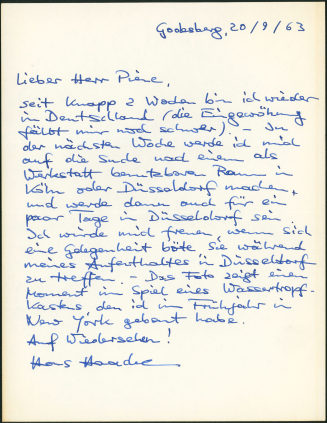 Godesberg, 20/9/63
Lieber Herr Piene,
seit knapp 2 Wochen bin ich wieder
in Deutschland (die Eingewöhung
fällt mir noch schwer). – In
der nächsten Woche werde ich mich
auf die Suche nach einem als
Werkstatt benutzbaren Raum in
Köln oder Düsseldorf machen,
und werde dann auch für ein
paar Tage in Düsseldorf sein
Ich würde mich freuen, wenn sich
eine Gelegenheit böte Sie während
meines Aufenthaltes in Düsseldorf
zu treffen. – Das Foto zeigt einen
Moment im Spiel eines Wassertropf-
kastens, den ich im Frühjahr in
New York gebaut habe.
Auf Wiedersehen!
Hans Haacke